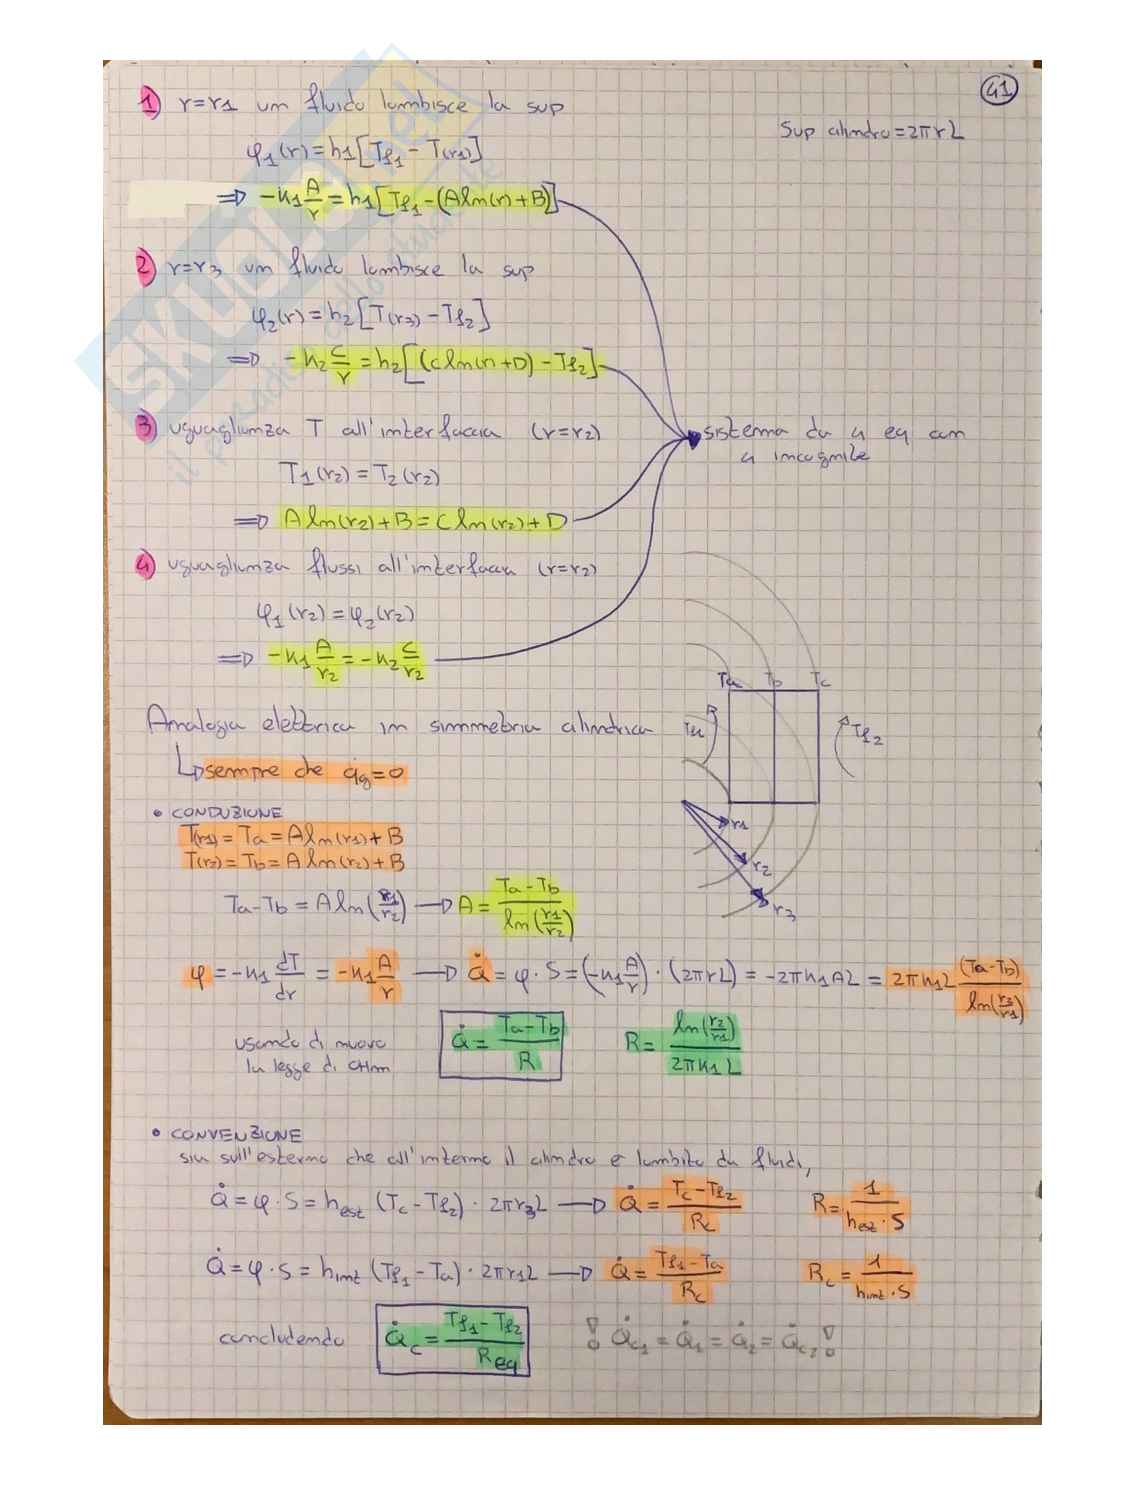 41
1) r=r1 un fluido lambisce la sup
Sup cilindro=2πrL
φ1(r)=h1[Tf1-T(r1)]
⇒ -K1 A/r = h1[Tf1-(Aln(r)+B)]
2) r=r3 un fluido lambisce la sup
φ2(r)=h2[T(r3)-Tf2]
⇒ -K2 C/r = h2[(Cln(r)+D)-Tf2]
3) uguaglianza T all'interfaccia (r=r2)
sistema da 4 eq con
4 incognite
T1(r2)=T2(r2)
⇒ Aln(r2)+B=Cln(r2)+D
4) uguaglianza flussi all'interfaccia (r=r2)
φ1(r2)=φ2(r2)
⇒ -K1 A/r2 = -K2 C/r2
Ta Tb Tc
Analogia elettrica in simmetria cilindrica
Tf2
↳ sempre che q̇g=0
• CONDUZIONE
T(r1)=Ta=Aln(r1)+B
T(r2)=Tb=Aln(r2)+B
r1
r2
r3
Ta-Tb=Aln(r1/r2) → A= (Ta-Tb)/ln(r1/r2)
φ=-K1 dT/dr = -K1 A/r → Q̇=φ·S=(-K1 A/r)·(2πrL)=-2πK1AL=2πK1L (Ta-Tb)/ln(r3/r1)
usando di nuovo
la legge di OHm
Q̇= (Ta-Tb)/R
R= ln(r2/r1)/2πK1L
• CONVENZIONE
sia sull'esterno che all'interno il cilindro e lambito da fluidi,
Q̇=φ·S=hest (Tc-Tf2)·2πr3L → Q̇= (Tc-Tf2)/Rc R= 1/hest·S
Q̇=φ·S=hint (Tf1-Ta)·2πr1L → Q̇= (Tf1-Ta)/Rc Rc= 1/hint·S
concludendo Q̇c= (Tf1-Tf2)/Req ! Q̇c1=Q̇1=Q̇2=Q̇c2 !
SKUOLA.net